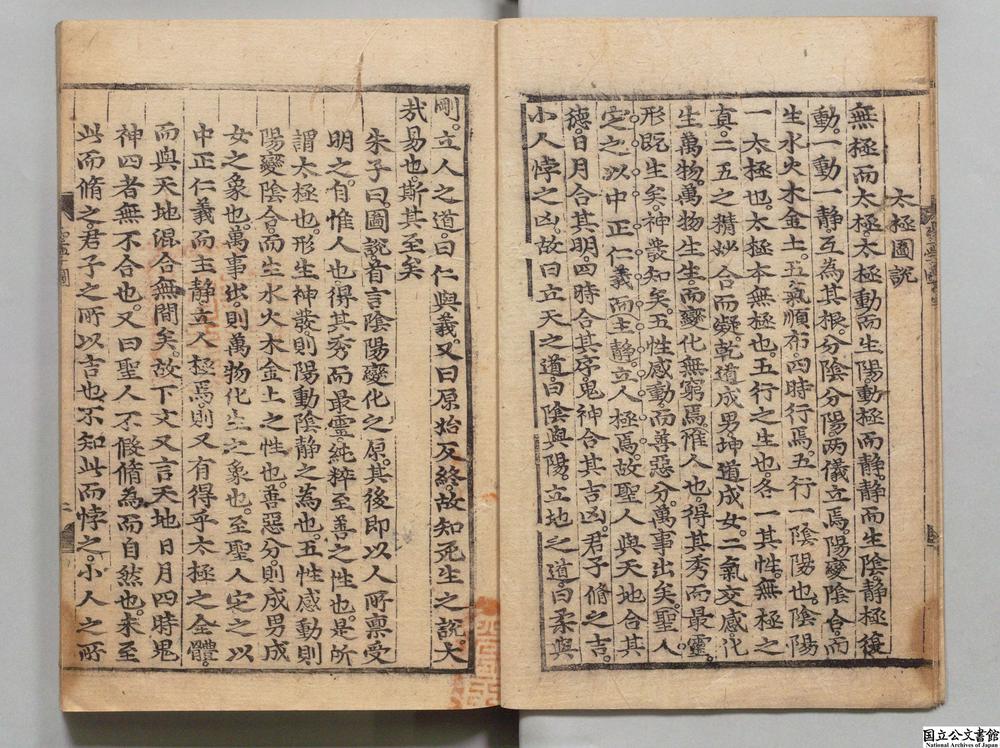 太極圖說
無極而太極。太極動而生陽。動極而靜。靜而生陰。靜極復
動。一動一靜。互為其根。分陰分陽。兩儀立焉。陽變陰合。而
生水火木金土。五氣順布。四時行焉。五行一陰陽也。陰陽
一太極也。太極本無極也。五行之生也。各一其性。無極之
真。二五之精。妙合而凝。乾道成男。坤道成女。二氣交感。化
生萬物。萬物生生。而變化無窮焉。惟人也。得其秀而最靈。
形既生矣。神發知矣。五性感動而善惡分。萬事出矣。聖人
定之以中正仁義而主靜。立人極焉。故聖人與天地合其
德。日月合其明。四時合其序。鬼神合其吉凶。君子脩之吉。
小人悖之凶。故曰立天之道。曰陰與陽。立地之道。曰柔與
剛。立人之道。曰仁與義。又曰原始反終。故知死生之說。大
哉易也。斯其至矣
朱子曰。圖說。首言陰陽變化之原。其後即以人所稟受
明之。自惟人也。得其秀而最靈。純粹至善之性也。是所
謂太極也。形生神發則陽動陰靜之為也。五性感動則
陽變陰合。而生水火木金土之性也。善惡分。則成男成
女之象也。萬事出。則萬物化生之象也。至聖人定之以
中正仁義而主靜。立人極焉。則又有得乎太極之全體。
而與天地混合無間矣。故下文又言天地日月四時鬼
神四者無不合也。又曰聖人不假脩為而自然也。未至
此而脩之。君子之所以吉也。不知此而悖之。小人之所
国立公文書館
National Archives of Japan